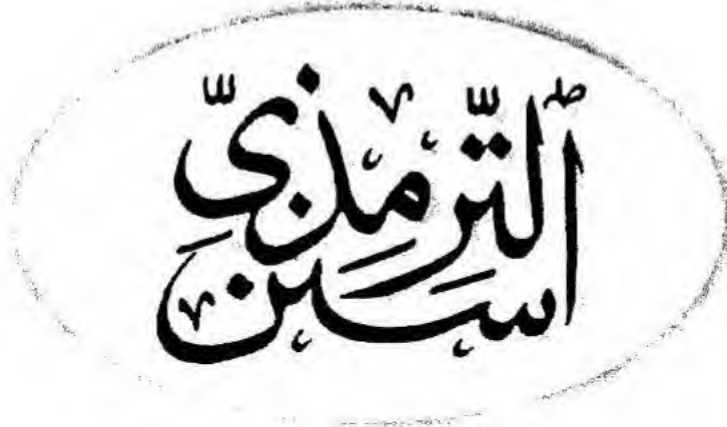 سنن التّرمِذيِّ